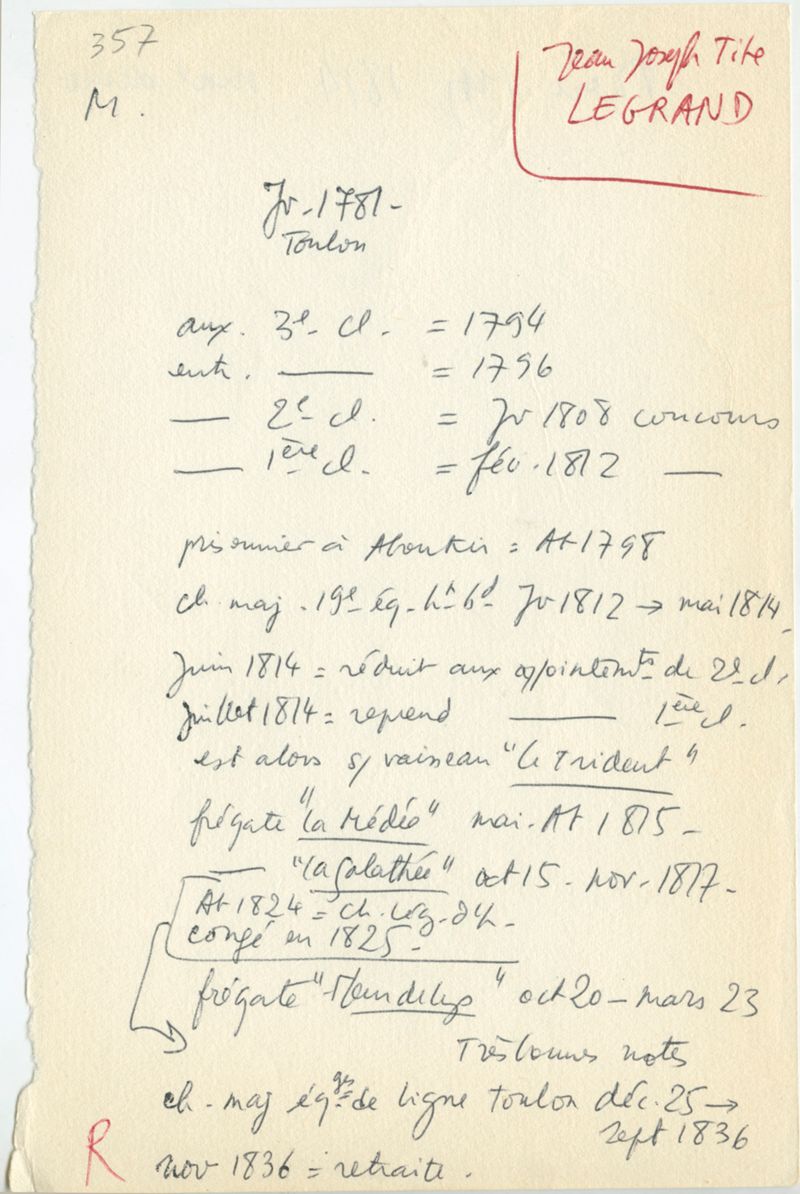 357
M.
Jean Joseph Tite
LEGRAND
Jv - 1781 -
Toulon
aux. 3e cl. = 1794
entr. —— = 1796
—— 2e cl. = Jv 1808 concours
—— 1ère cl. = fév. 1812 ——
prisonnier à Aboukir = At 1798
ch. maj. 19e éq. ht bd Jv 1812 → mai 1814
Juin 1814 = réduit aux appointemts de 2e cl.
Juillet 1814 = reprend —— 1ère cl.
est alors s/ vaisseau "le Trident"
frégate "la Médée" mai - At 1815 -
—— "la Galathée" oct 15 - nov. 1817 -
At 1824 = ch. Lég. d'h.
congé en 1825 -
frégate "Fleur de Lys" oct 20 - mars 23
Très bonnes notes
ch. maj éqges de ligne Toulon déc. 25 →
sept 1836
R
nov 1836 = retraite.